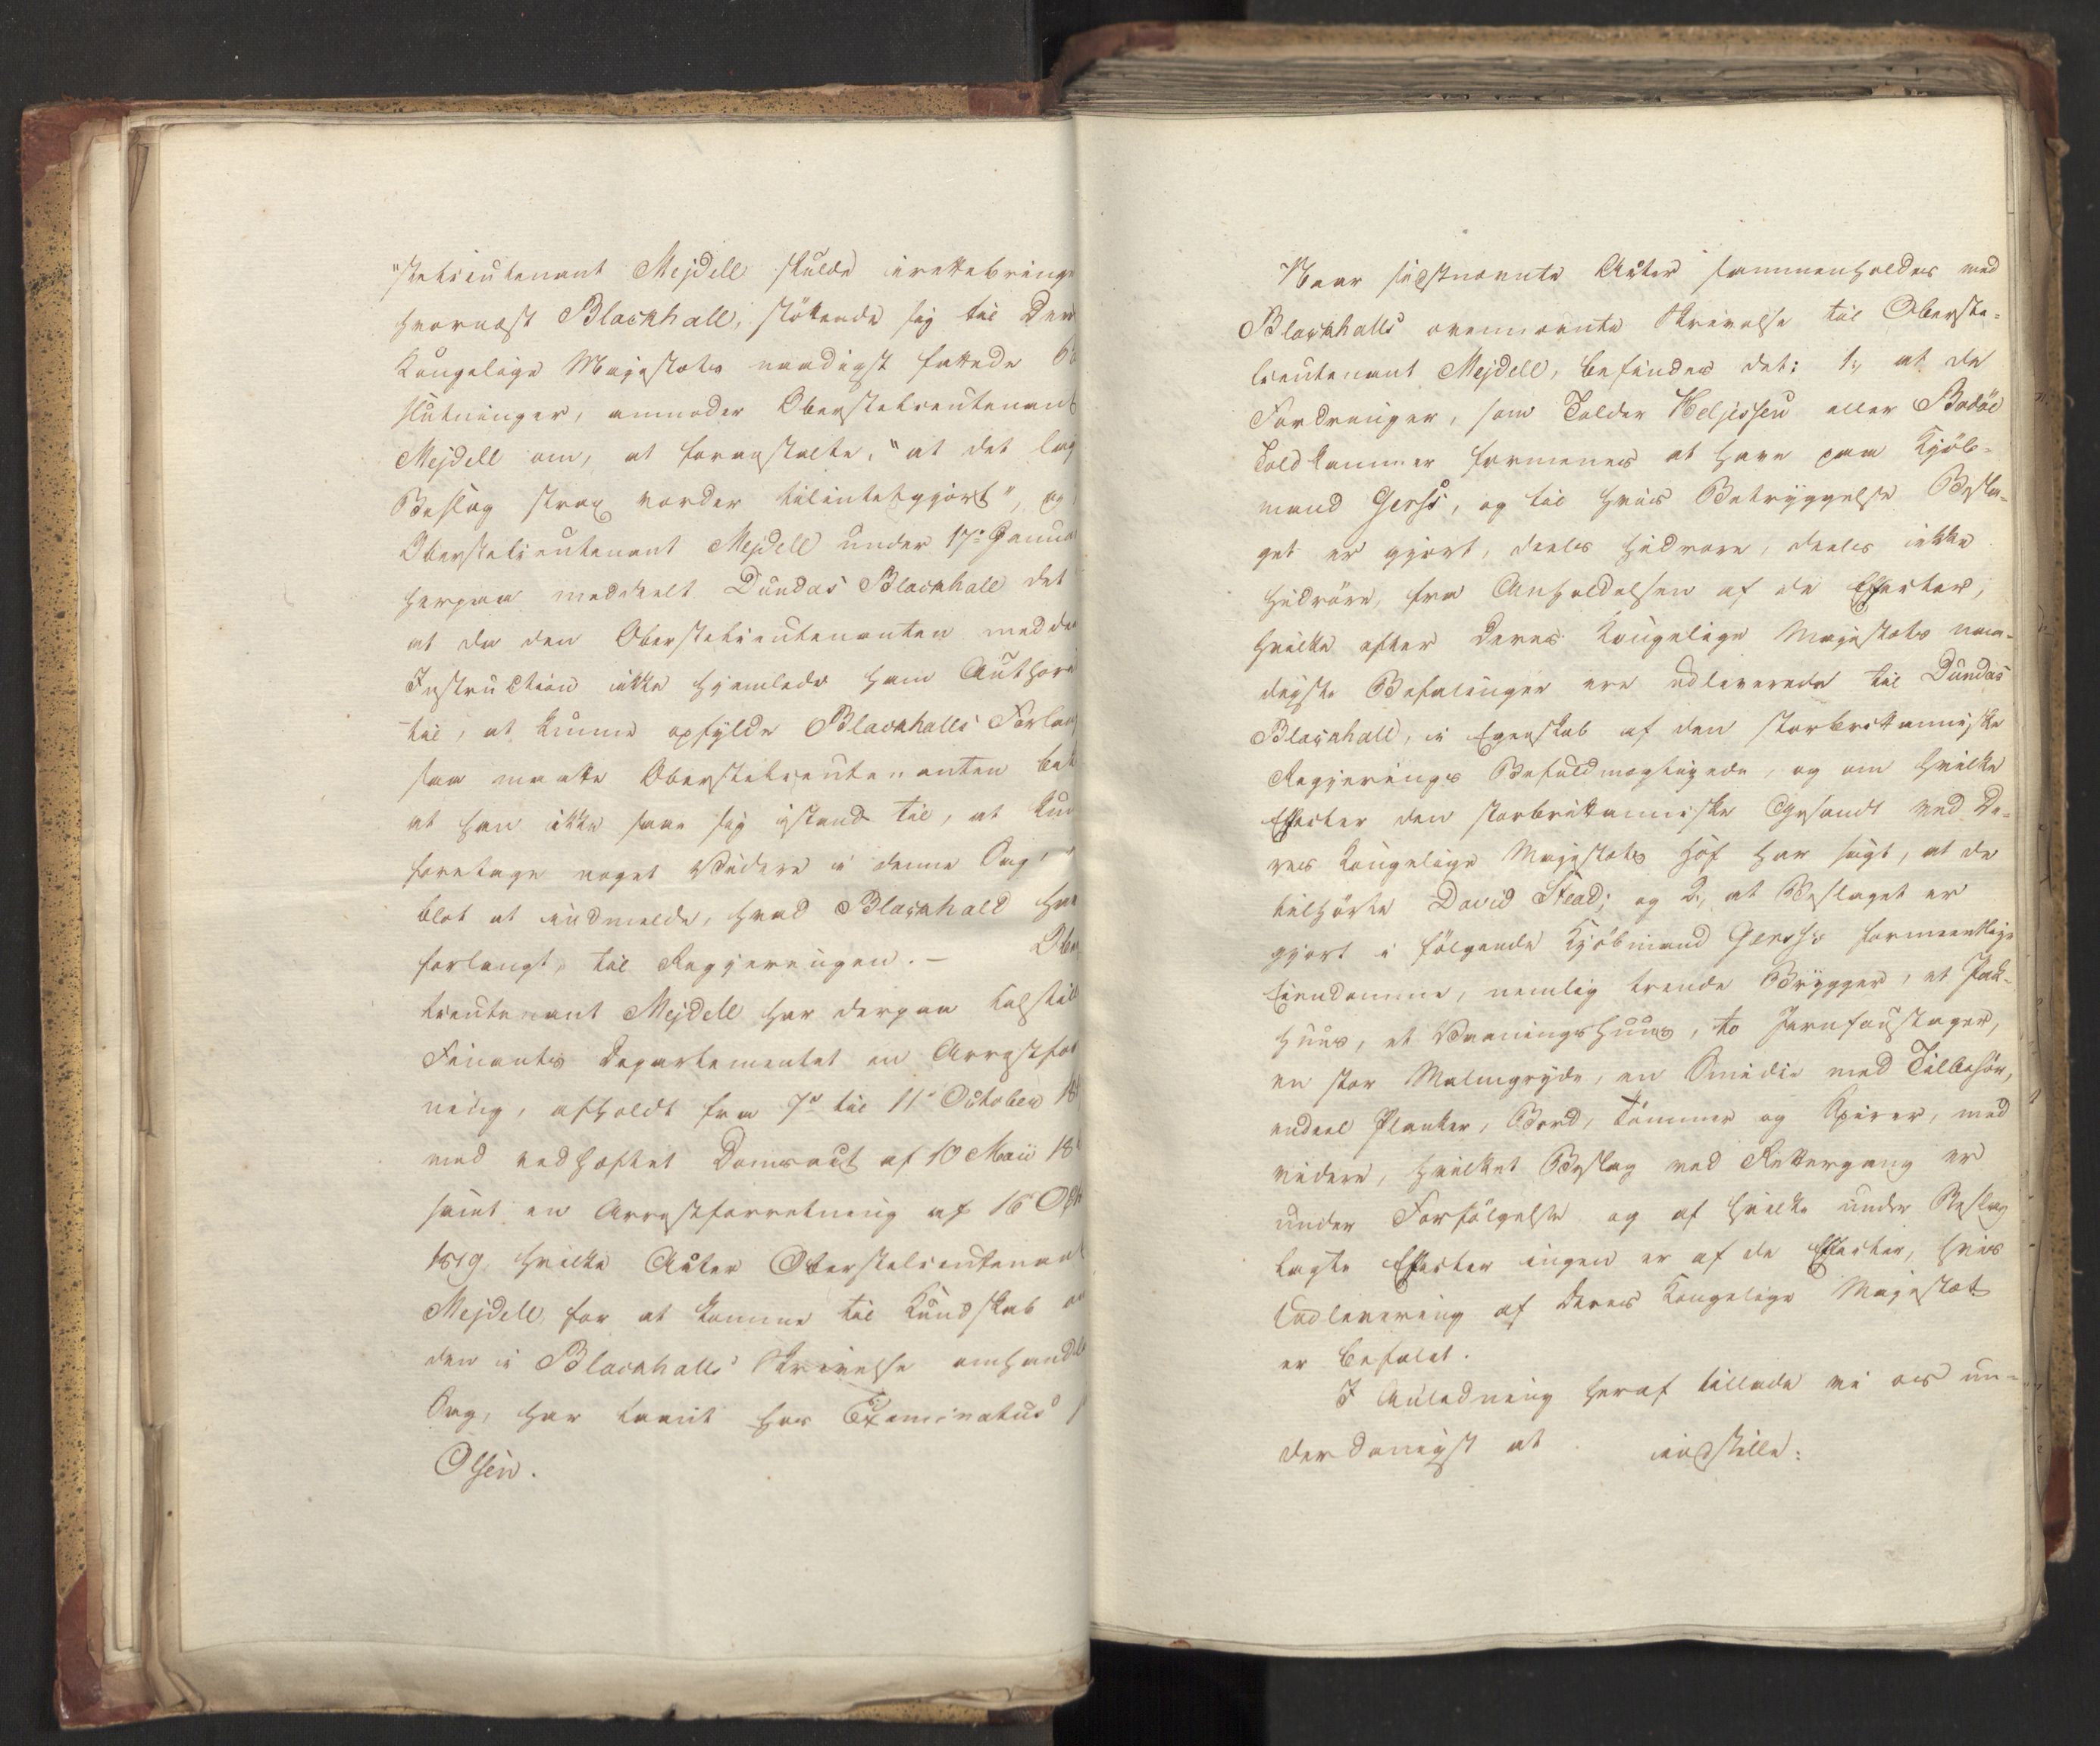 "stelieutenant Mejdell skulde irettebringe
hvornæst Blackhall, støttende sig til Der
Kongelige Majestæts naadigst fattede Be
slutninger, anmoder Oberstelieutenant
Mejdell om, at foranstalte, "at det lag
Beslag strax vorder tilintetgjort", og
Oberstelieutenant Mejdell under 17de Janua
herpaa meddeelt Dundas Blackhall det
at da den Oberstelieutenanten medde
Instruction ikke hjemlede ham Authori
til, at kunne opfylde Blackhalls Forlang
saa maatte Oberstelieutenanten be
at han ikke saae sig istand til, at kun
foretage noget Videre i denne Sag,
blot at indmelde, hvad Blackhall hav
forlangt, til Regjeringen. – Ober
lieutenant Mejdell har derpaa tilstil
Finants Departementet en Arrestfor
ning, afholdt fra 7de til 11te October 18
med vedhæftet Domsact af 10 Maii 18
samt en Arrestforretning af 16 Oct
1819, hvilke Akter Oberstelieutenant
Mejdell, for at komme til Kundskab om
den i Blackhalls Skrivelse omhandle
Sag, har laant hos Examinatus
Olsen.
Naar sidstnævnte Akter sammenholdes med
Blackhalls ovennævnte Skrivelse til Oberste-
lieutenant Mejdell, befindes det: 1, at de
Fordringer, som Tolder Heljessen eller Bodøe
Toldkammer formenes at have paa Kjøb-
mand Gerss, og til hvis Betryggelse Besla-
get er gjort, deels hidrøre, deels ikke
hidrøre, fra Anholdelsen af de Effecter,
hvilke efter Deres Kongelige Majestæts naa-
digste Befalinger ere udleverede til Dundas
Blackhall, i Egenskab af den storbrittaniske
Regjerings Befuldmægtigede, og om hvilke
Effecter den storbrittanniske Gesandt ved De-
res Kongelige Majestæts Hof har sagt, at de
tilhørte David Stead; og 2, at Beslaget er
gjort i følgende Kjøbmand Gerss's formeentlige
Eiendomme, nemlig trende Brygger, et Pak-
huus, et Vaaningshuus, to Jernfaustager,
en stor Malmgryde, en Smedie med Tilbehør,
endeel Planker, Bord, Tømmer og Spirer, med
videre, hvilket Beslag ved Rettergang er
under Forfølgelse og af hvilke under Beslag
lagte Effecter ingen er af de Effecter, hvis
Udlevering af Deres Kongelige Majestæt
er befalet.
I Anledning heraf tillade vi os un-
derdanigst at indstille: